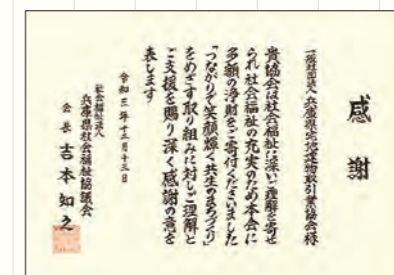 感謝
一般社団法人 兵庫県宅地建物取引業協会様
貴協会は社会福祉に深いご理解を寄せ
られ社会福祉の充実のため本会に
多額の浄財をご寄付くださいました
「つながりで笑顔輝く共生のまちづくり」
をめざす取り組みに対しご理解と
ご支援を賜り深く感謝の意を
表します
令和三年十二月十三日
社会福祉法人
兵庫県社会福祉協議会
会長 吉本知之